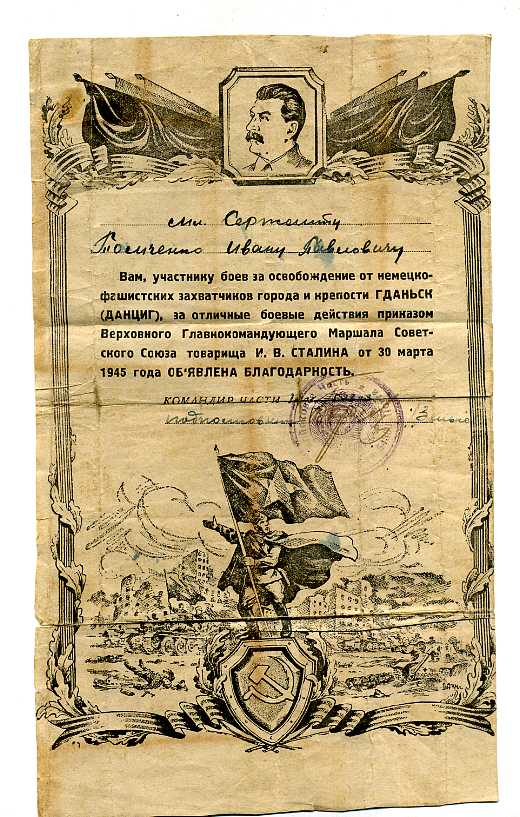 мл. Сержанту
Ивану Павловичу
Вам, участнику боев за освобождение от немецко-
фашистских захватчиков города и крепости ГДАНЬСК
(ДАНЦИГ), за отличные боевые действия приказом
Верховного Главнокомандующего Маршала Совет-
ского Союза товарища И. В. СТАЛИНА от 30 марта
1945 года ОБ'ЯВЛЕНА БЛАГОДАРНОСТЬ.
КОМАНДИР ЧАСТИ
Часть